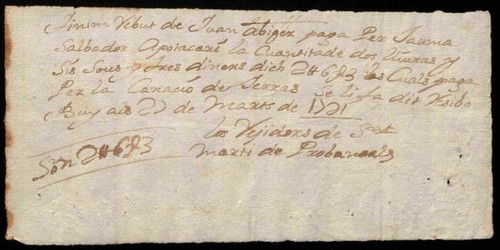 Sinem Rebut de Juan Abiger papa Per Jauma
Salbador Apotacari la Cuantitade dos lliuras y
Sis Sous y tres diners dich 2 ll 6 s 3 las Cuals paga
Per la Canació de Terras Se li fa dit Resibo
Buy als 22 de Marts de 1721
los Rejidors de Sant
Marti de Probansals
Són 2 ll 6 s 3